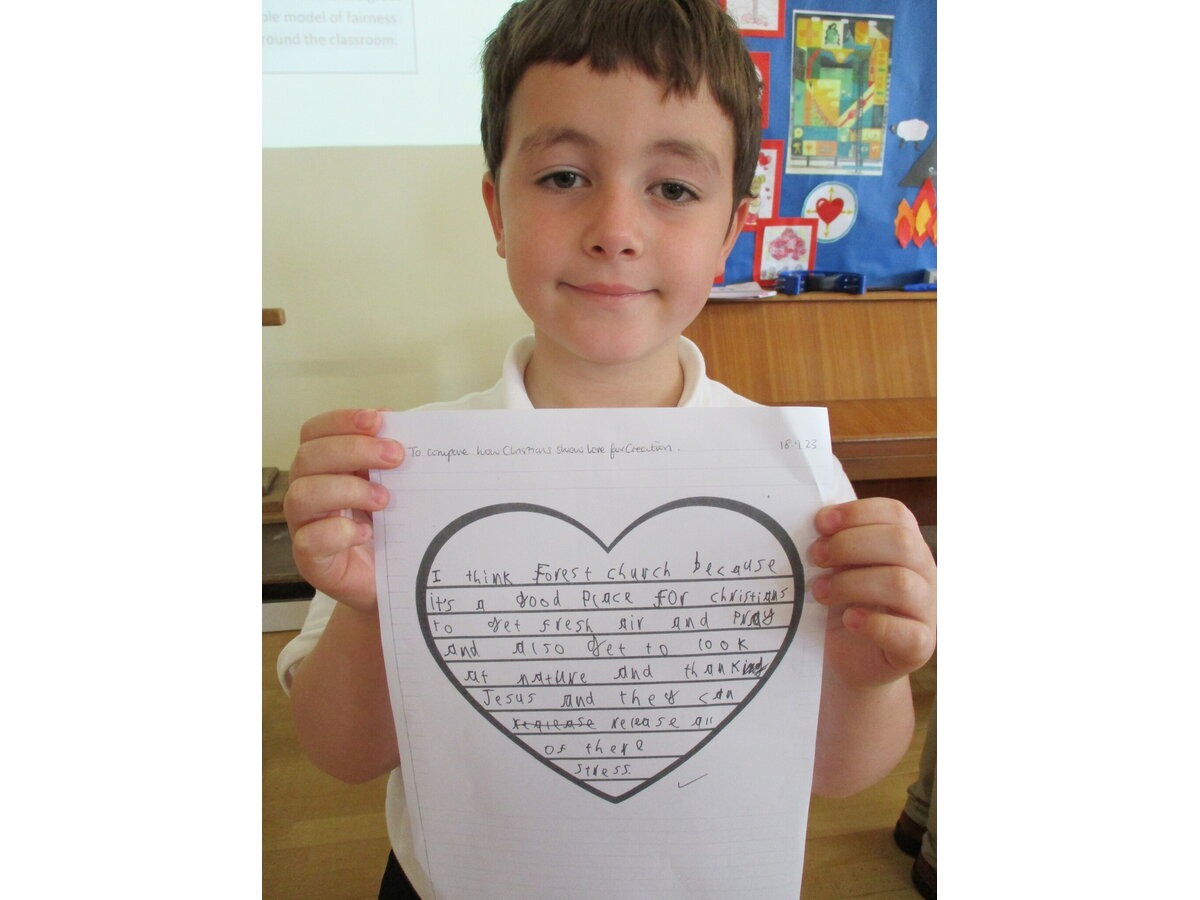 ple model of fairness
round the classroom.
To compare how Christians show love for Creation.
18.4.23
I think Forest church because
it's a good place for christians
to get fresh air and pray
and also get to look
at nature and thank
Jesus and they can
release all
of there
stress.